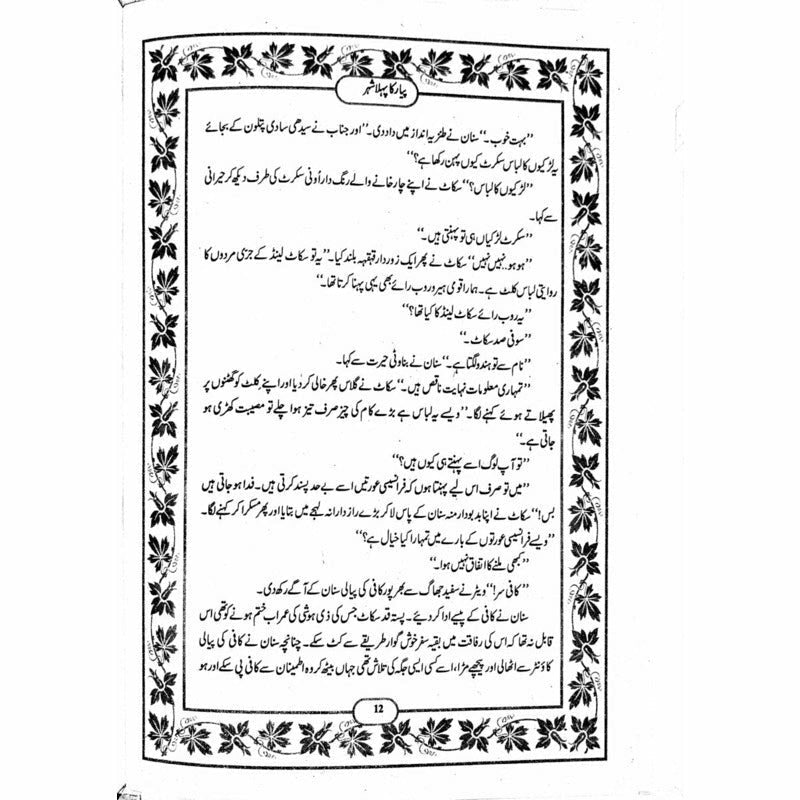 پیار کا پہلا شہر
’’بہت خوب۔‘‘ سنان نے طنزیہ انداز میں داد دی۔ ’’اور جناب نے سیدھی سادی پتلون کے بجائے
یہ لڑکیوں کا لباس سکرٹ کیوں پہن رکھا ہے؟‘‘
’’لڑکیوں کا لباس؟‘‘ سکاٹ نے اپنے چار خانے والے رنگ دار اُونی سکرٹ کی طرف دیکھ کر حیرانی
سے کہا۔
’’سکرٹ لڑکیاں ہی تو پہنتی ہیں۔‘‘
’’ہو ہو.. نہیں نہیں‘‘ سکاٹ نے پھر ایک زوردار قہقہہ بلند کیا۔ ’’یہ تو سکاٹ لینڈ کے جری مردوں کا
روایتی لباس کلٹ ہے۔ ہمارا قومی ہیرو روب رائے بھی یہی پہنا کرتا تھا۔‘‘
’’یہ روب رائے سکاٹ لینڈ کا کیا تھا؟‘‘
’’سو فی صد سکاٹ۔‘‘
’’نام سے تو ہندو لگتا ہے۔‘‘ سنان نے بناوٹی حیرت سے کہا۔
’’تمہاری معلومات نہایت ناقص ہیں۔‘‘ سکاٹ نے گلاس پھر خالی کر دیا اور اپنے کلٹ کو گھٹنوں پر
پھیلاتے ہوئے کہنے لگا۔ ’’ویسے یہ لباس ہے بڑے کام کی چیز صرف تیز ہوا چلے تو مصیبت کھڑی ہو
جاتی ہے۔‘‘
’’تو آپ لوگ اسے پہنتے ہی کیوں ہیں؟‘‘
’’میں تو صرف اس لیے پہنتا ہوں کہ فرانسیسی عورتیں اسے بے حد پسند کرتی ہیں۔ فدا ہو جاتی ہیں
بس!‘‘ سکاٹ نے اپنا بدبودار منہ سنان کے پاس لا کر بڑے رازدارانہ لہجے میں بتایا اور پھر مسکرا کر کہنے لگا۔
’’ویسے فرانسیسی عورتوں کے بارے میں تمہارا کیا خیال ہے؟‘‘
’’کبھی ملنے کا اتفاق نہیں ہوا۔‘‘
’’کافی سر!‘‘ ویٹر نے سفید جھاگ سے بھرپور کافی کی پیالی سنان کے آگے رکھ دی۔
سنان نے کافی کے پیسے ادا کر دیئے۔ پستہ قد سکاٹ جس کی ذی ہوشی کی عمر اب ختم ہونے کو تھی اس
قابل نہ تھا کہ اس کی رفاقت میں بقیہ سفر خوش گوار طریقے سے کٹ سکے۔ چنانچہ سنان نے کافی کی پیالی
کاؤنٹر سے اٹھالی اور پیچھے مڑا، اسے کسی ایسی جگہ کی تلاش تھی جہاں بیٹھ کر وہ اطمینان سے کافی پی سکے اور ہو
12